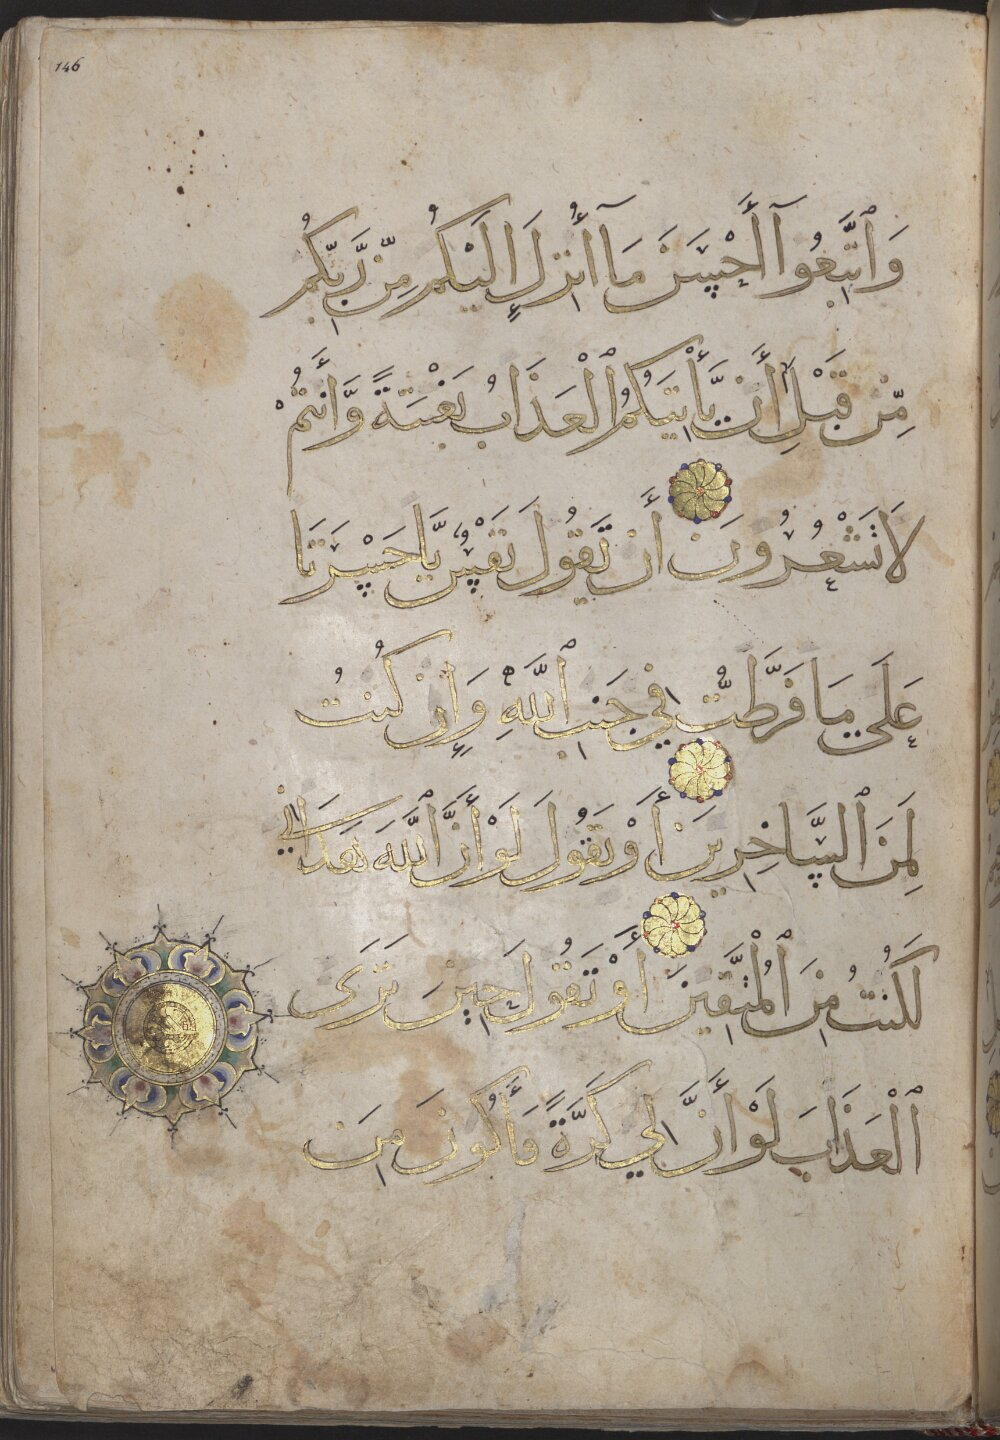 146
وَٱتَّبِعُوٓا أَحْسَنَ مَآ أُنزِلَ إِلَيْكُم مِّن رَّبِّكُم
مِّن قَبْلِ أَن يَّأْتِيَكُمُ ٱلْعَذَابُ بَغْتَةً وَّأَنتُمْ
لَا تَشْعُرُونَ أَن تَقُولَ نَفْسٌ يَّا حَسْرَتَا
عَلَى مَا فَرَّطتُّ فِي جَنبِ ٱللَّهِ وَإِن كُنتُ
لَمِنَ ٱلسَّاخِرِينَ أَوْ تَقُولَ لَوْ أَنَّ ٱللَّهَ هَدَانِي
لَكُنتُ مِنَ ٱلْمُتَّقِينَ أَوْ تَقُولَ حِينَ تَرَى
ٱلْعَذَابَ لَوْ أَنَّ لِي كَرَّةً فَأَكُونَ مِنَ